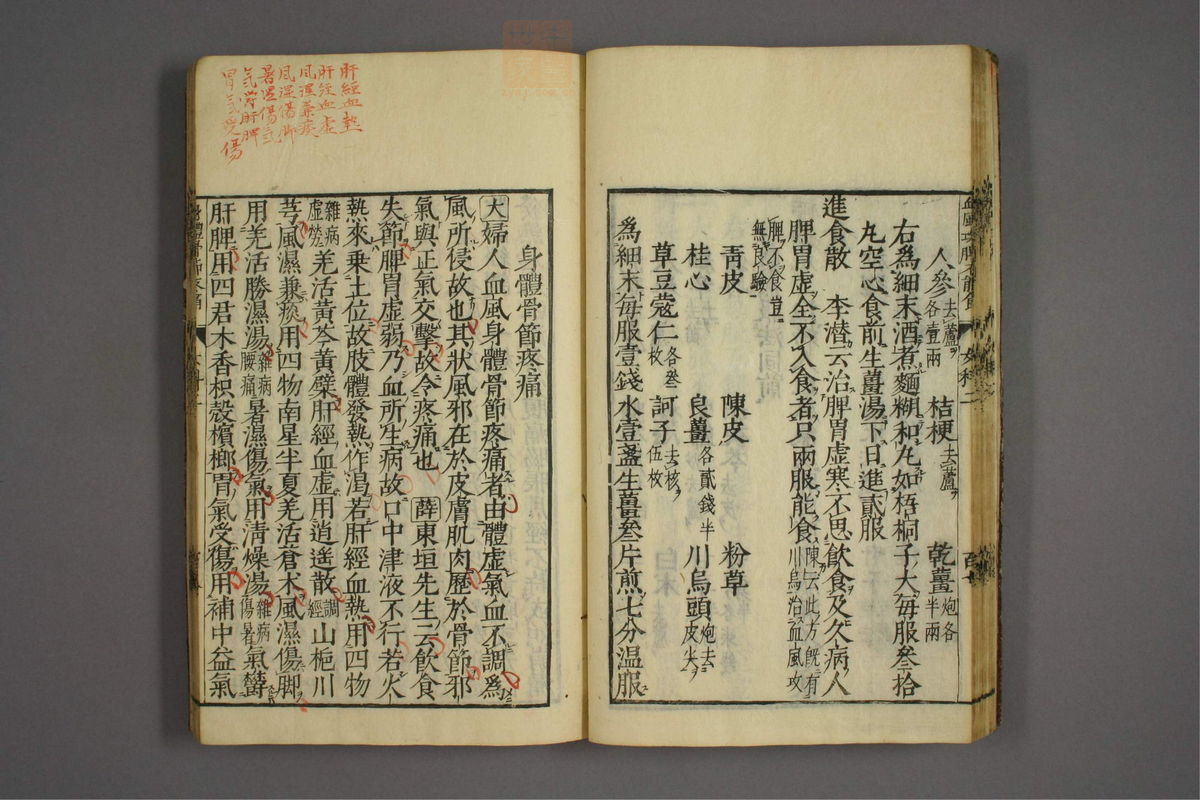 人參去蘆各壹兩 桔梗去蘆 乾薑炮各半兩
右爲細末酒煮麵糊和丸如梧桐子大每服叄拾
丸空心食前生薑湯下日進貳服
進食散 李潜云治脾胃虚寒不思飲食及久病人
脾胃虚全不入食者只兩服能食陳云此方既有川烏治血風攻
脾不食豈無良驗
靑皮 陳皮 粉草
桂心 良薑各貳錢半 川烏頭炮去皮尖
草豆蔻仁各叄枚 訶子去核伍枚
爲細末每服壹錢水壹盞生薑叄片煎七分温服
身體骨節疼痛
大婦人血風身體骨節疼痛者由體虚氣血不調爲
風所侵故也其狀風邪在於皮膚肌肉歷於骨節邪
氣與正氣交擊故令疼痛也 薛東垣先生云飲食
失節脾胃虚弱乃血所生病故口中津液不行若火
熱來乗土位故肢體發熱作渇若肝經血熱用四物
羌活黃芩黃蘗肝經血虚用逍遥散調經山梔川
芎風濕兼痰用四物南星半夏羌活蒼朮風濕傷脚
用羌活勝濕湯雜病腰痛暑濕傷氣用淸燥湯雜病傷暑氣欝
肝脾用四君木香枳殻檳榔胃氣受傷用補中益氣
肝經血熱
肝經血虚
風濕兼痰
風湿傷脚
暑湿傷氣
気欝肝脾
胃気受傷